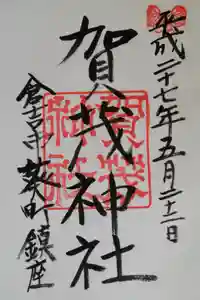 平成二十七年五月二十二日
賀茂神社
倉吉市葵町鎮座
賀茂
神社